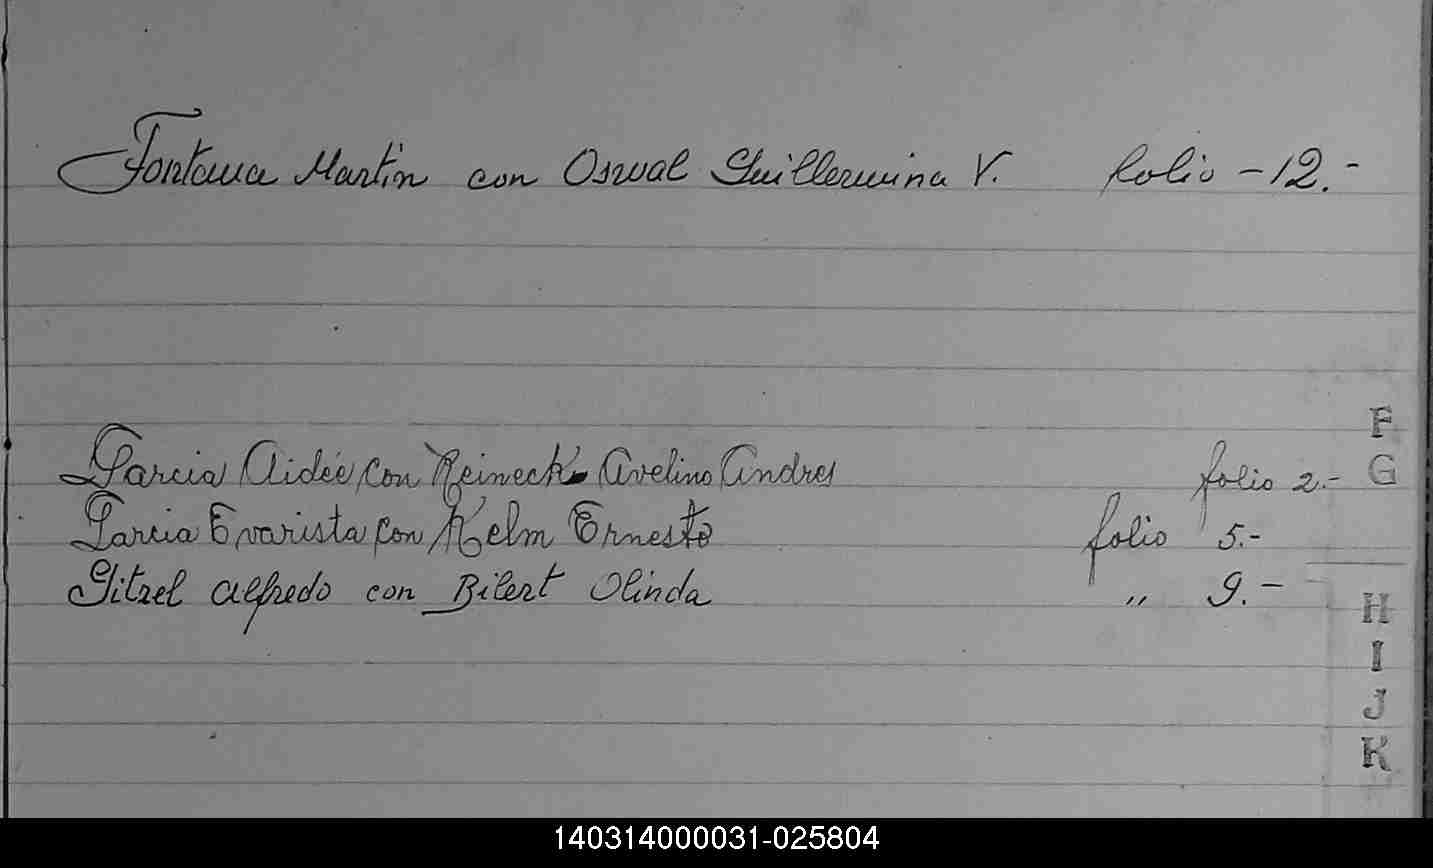 Fontana Martin con Osval Guillermina V. folio - 12.-
Garcia Aidée con Reineck Avelino Andres folio 2.-
Garcia Evarista con Kelm Ernesto folio 5.-
Gitzel Alfredo con Bilert Olinda " 9.-
F
G
H
I
J
K
140314000031-025804